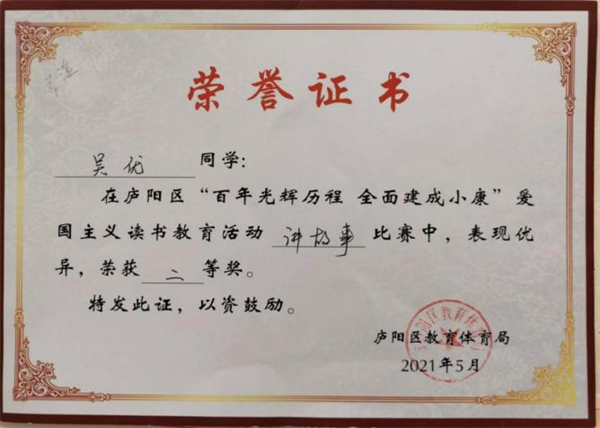 荣誉证书
吴优 同学:
在庐阳区“百年光辉历程 全面建成小康”爱
国主义读书教育活动 讲故事 比赛中，表现优
异，荣获 二 等奖。
特发此证，以资鼓励。
庐阳区教育体育局
2021年5月